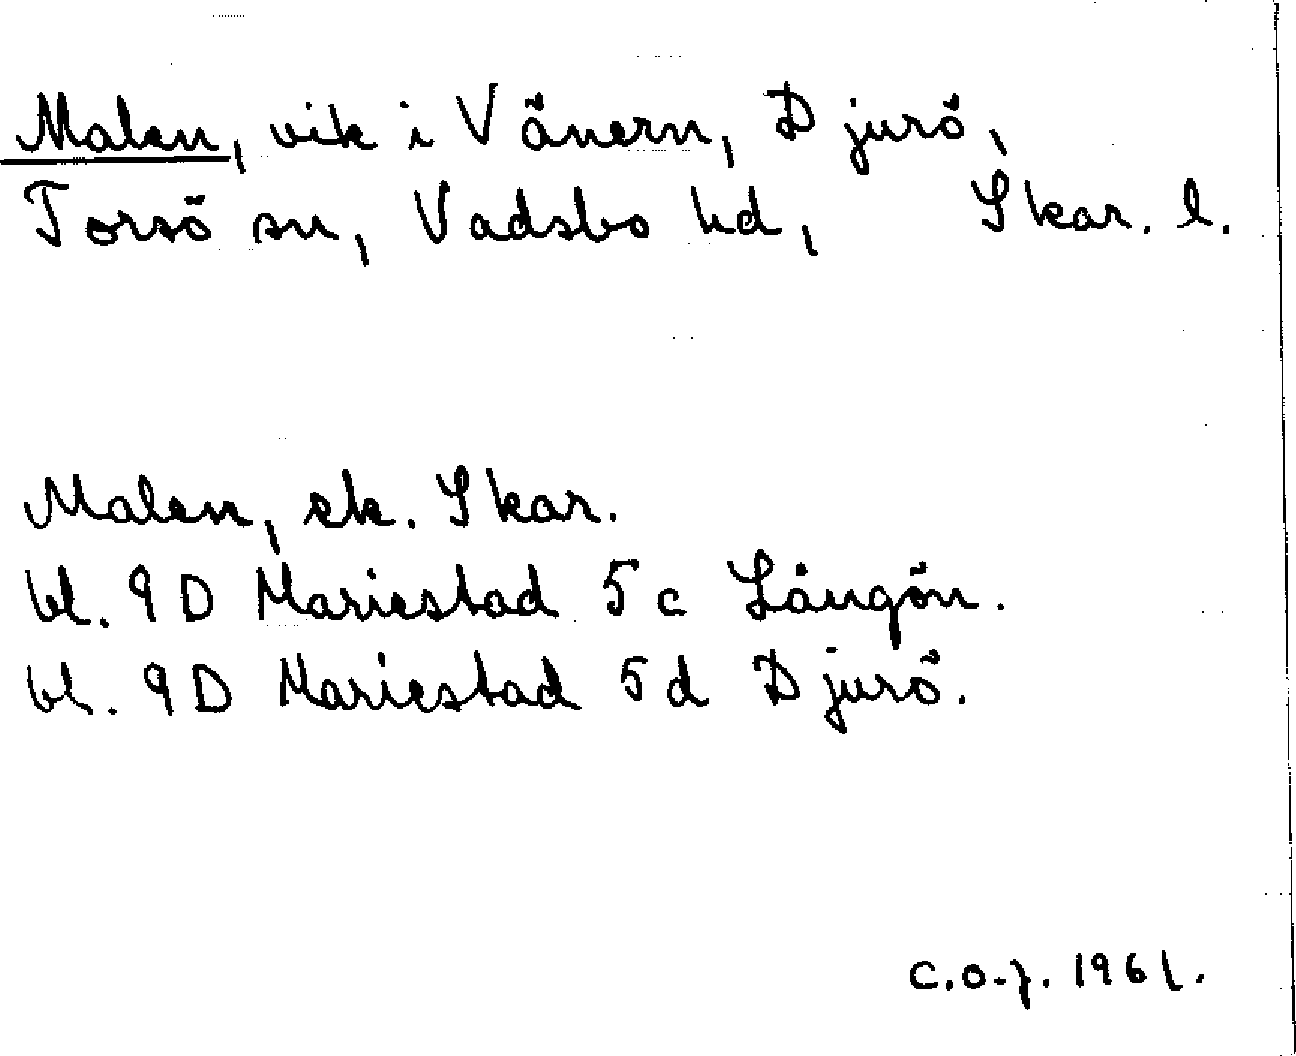 Malen, vik i Vänern, Djurö,
Torsö sn, Vadsbo hd, Skar. l.
Malen, ek. Skar.
bl. 9D Mariestad 5c Långön.
bl. 9D Mariestad 5d Djurö.
C.O-j. 1961.